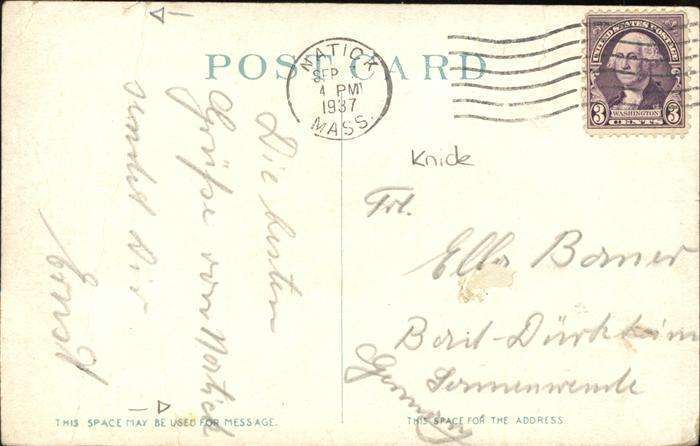 POST CARD
NATICK
SEP
4 PM
1937
MASS.
UNITED STATES POSTAGE
3
WASHINGTON
3
CENTS
Die besten
Grüße von Natick
sendet Dir
Ernst
Knide
Frl.
Ella Borner
Bad-Dürkheim
Sonnenwende
Germany
THIS SPACE MAY BE USED FOR MESSAGE.
THIS SPACE FOR THE ADDRESS.